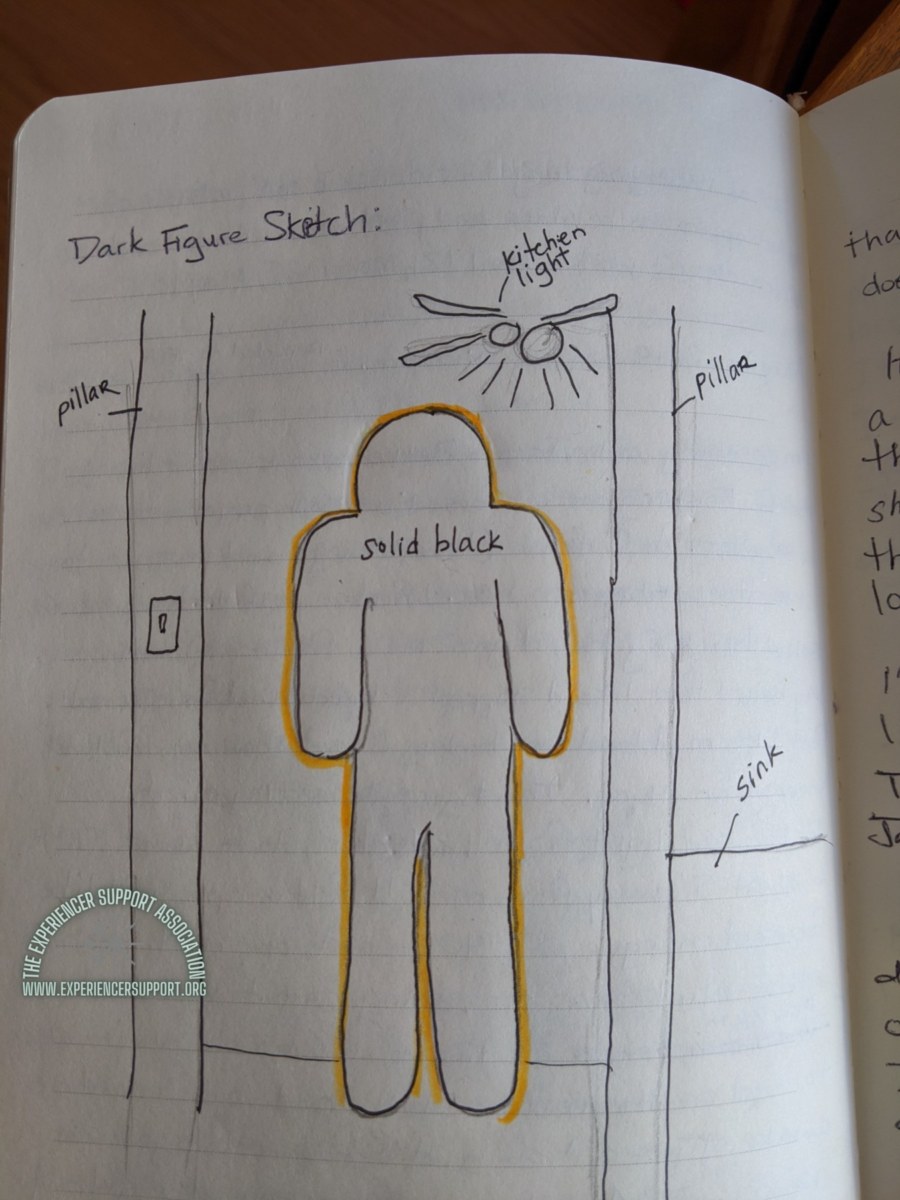 Dark Figure Sketch:
kitchen
light
pillar
pillar
solid black
sink
THE EXPERIENCER SUPPORT ASSOCIATION
WWW.EXPERIENCERSUPPORT.ORG
a